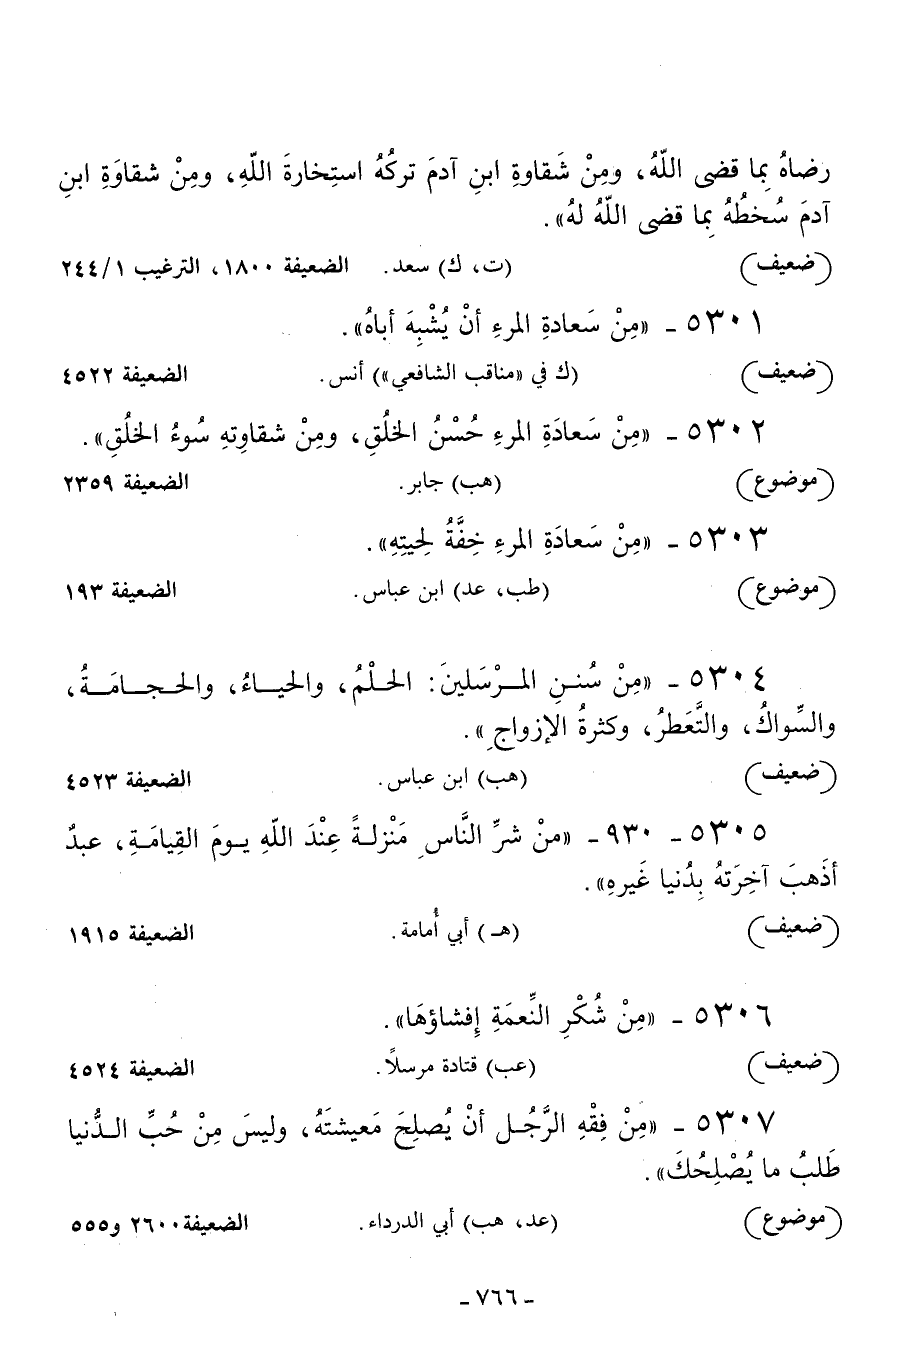 رضاهُ بِما قضى اللّهُ، ومِنْ شَقاوةِ ابنِ آدمَ تركُهُ استِخارةَ اللّهِ، ومِنْ شقاوَةِ ابنِ
آدمَ سُخطُهُ بِما قضى اللّهُ لهُ».
(ضعيف) (ت، ك) سعد. الضعيفة ١٨٠٠، الترغيب ٢٤٤/١
٥٣٠١ - «مِنْ سَعادةِ المرءِ أنْ يُشْبِهَ أباهُ».
(ضعيف) (ك في «مناقب الشافعي») أنس. الضعيفة ٤٥٢٢
٥٣٠٢ - «مِنْ سَعادَةِ المرءِ حُسْنُ الخلُقِ، ومِنْ شقاوتِهِ سُوءُ الخلُقِ».
(موضوع) (هب) جابر. الضعيفة ٢٣٥٩
٥٣٠٣ - «مِنْ سَعادَةِ المرءِ خِفَّةُ لِحيتِهِ».
(موضوع) (طب، عد) ابن عباس. الضعيفة ١٩٣
٥٣٠٤ - «مِنْ سُننِ المرْسَلينَ: الحلْمُ، والحياءُ، والحجامَةُ،
والسِّواكُ، والتَّعَطرُ، وكثرةُ الإزواجِ».
(ضعيف) (هب) ابن عباس. الضعيفة ٤٥٢٣
٥٣٠٥ - ٩٣٠ - «منْ شرِّ النَّاسِ مَنْزلةً عِنْدَ اللّهِ يومَ القِيامَةِ، عبدٌ
أذَهبَ آخِرَتهُ بِدُنيا غَيرهِ».
(ضعيف) (هـ) أبي أُمامة. الضعيفة ١٩١٥
٥٣٠٦ - «مِنْ شُكْرِ النِّعمَةِ إفشاؤهَا».
(ضعيف) (عب) قتادة مرسلاً. الضعيفة ٤٥٢٤
٥٣٠٧ - «مِنْ فِقْهِ الرَّجُلِ أنْ يُصلِحَ مَعيشتَهُ، وليسَ مِنْ حُبِّ الدُّنيا
طَلبُ ما يُصْلِحُكَ».
(موضوع) (عد، هب) أبي الدرداء. الضعيفة ٢٦٠٠ و٥٥٥
- ٧٦٦ -